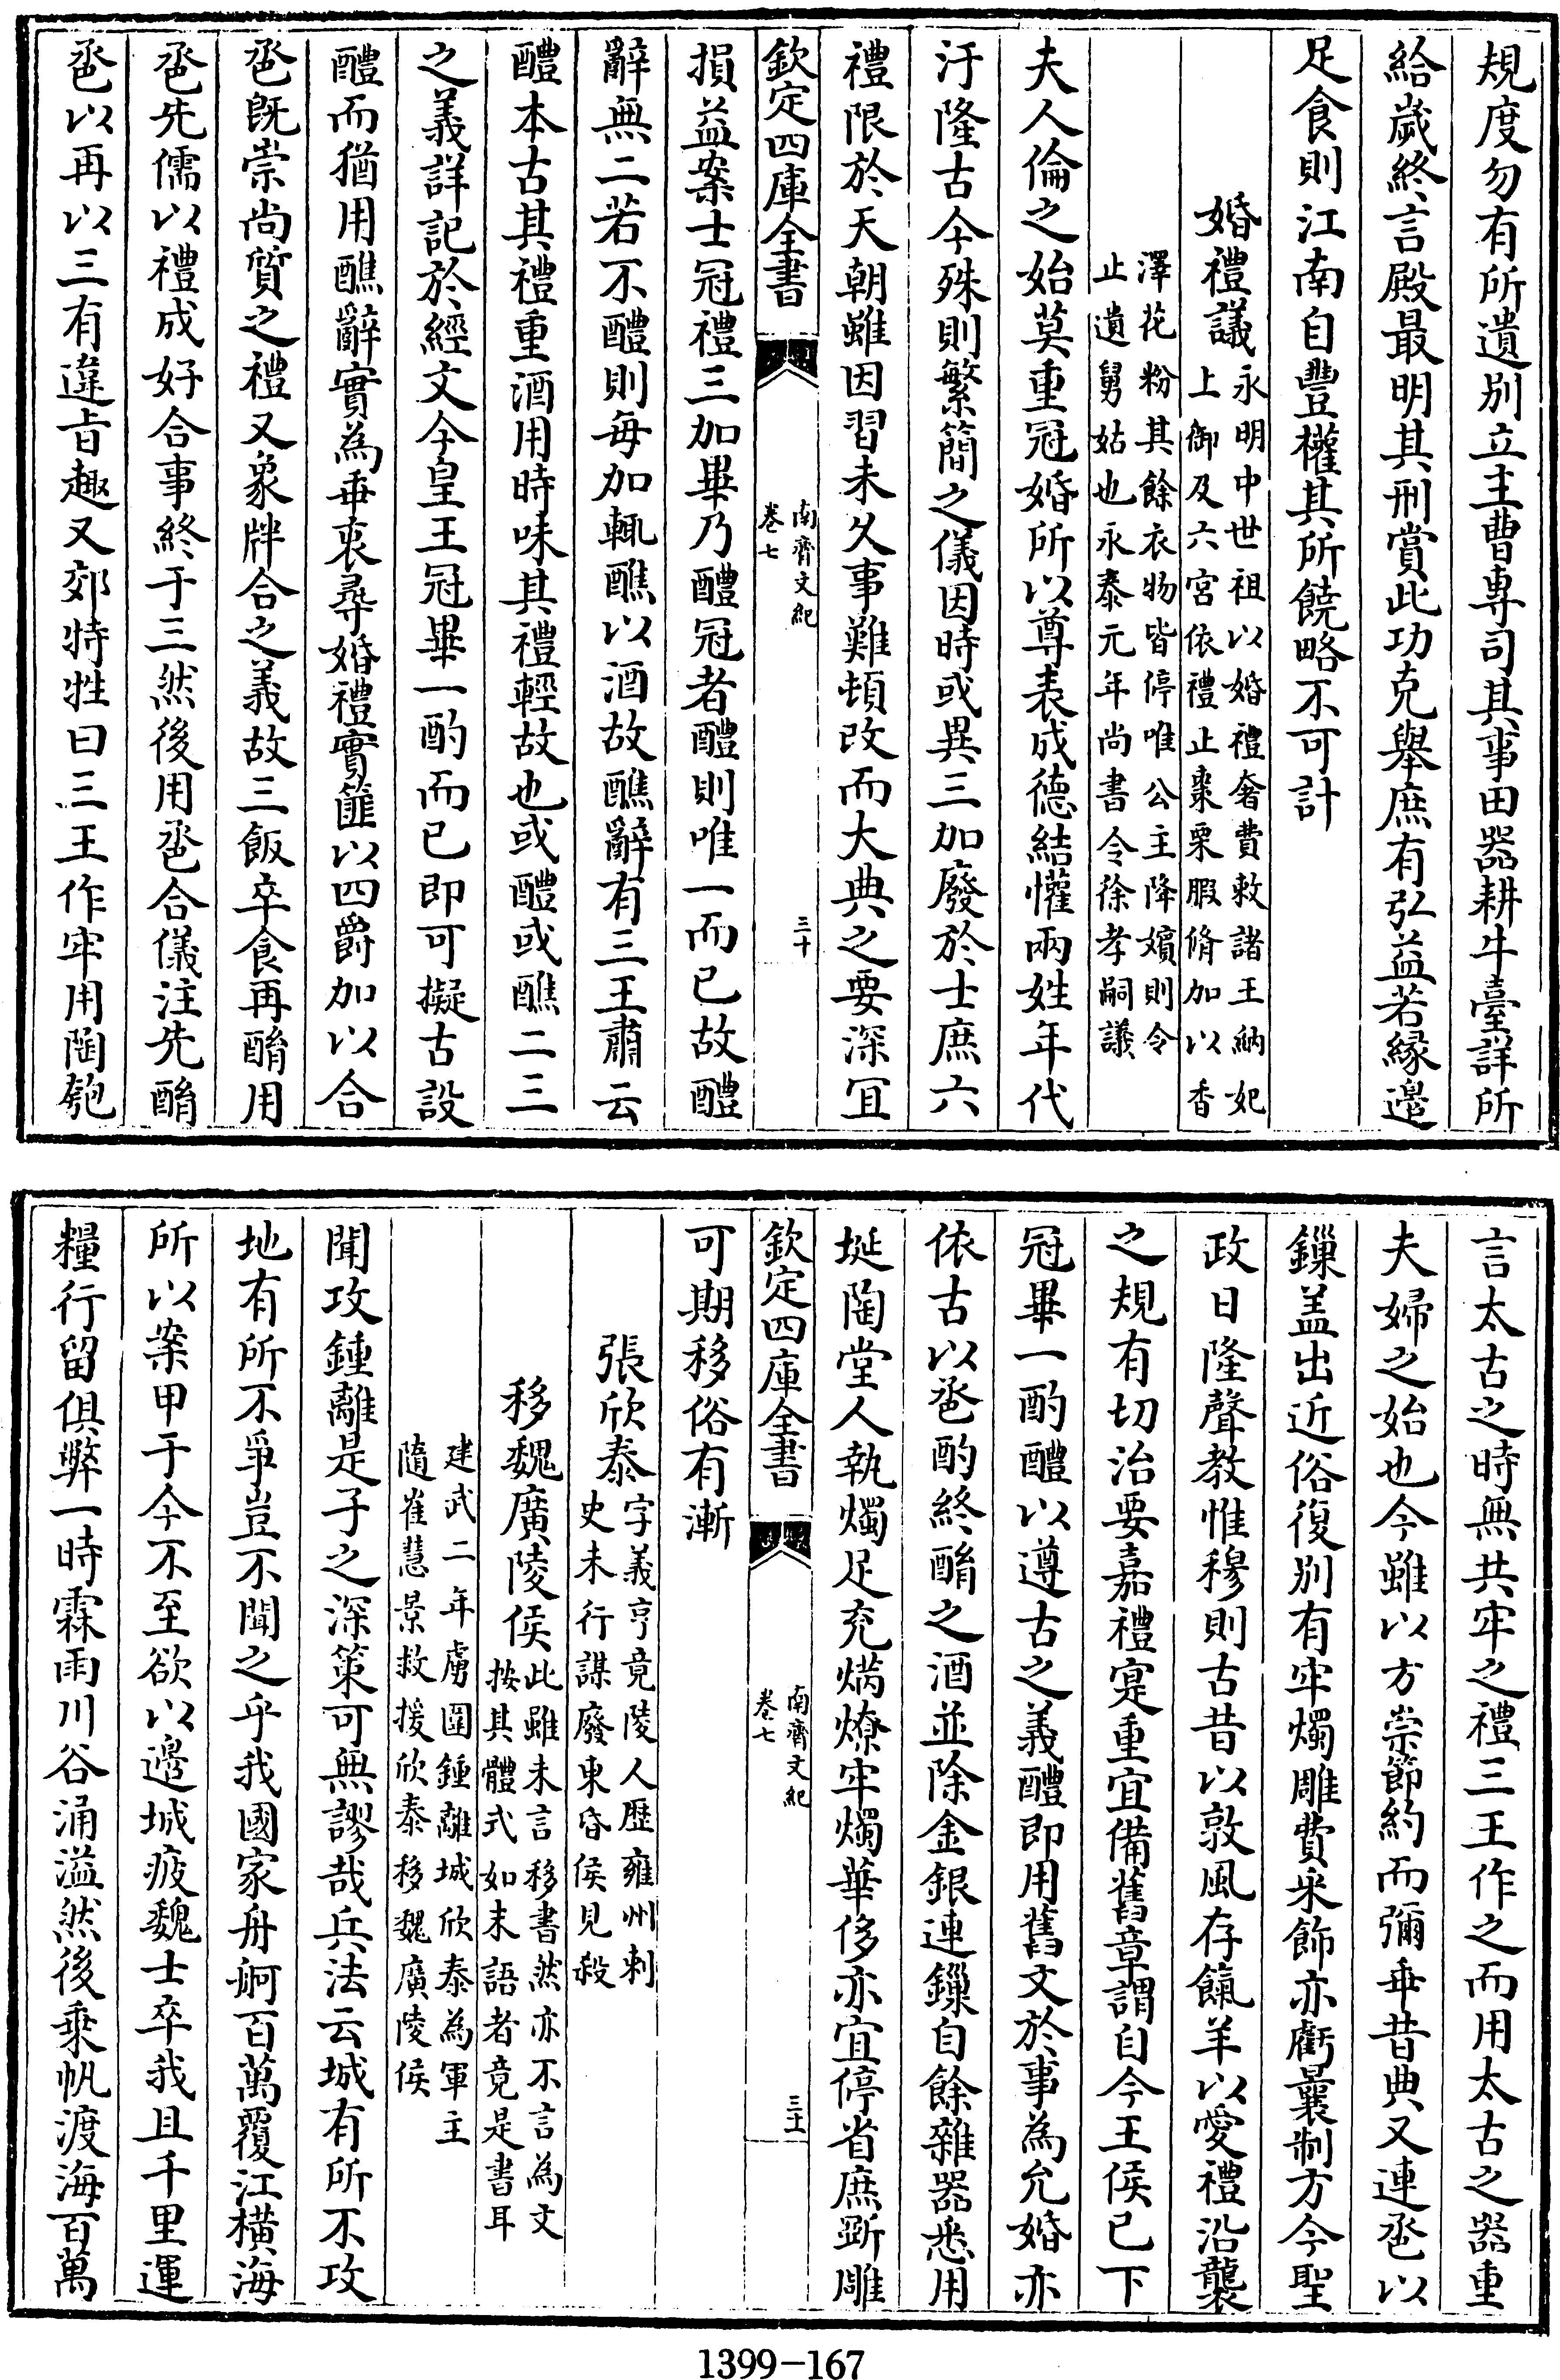 規度勿有所遺别立主曹專司其事田器耕牛臺詳所
給歲終言殿最明其刑賞此功克舉庶有弘益若緣邊
足食則江南自豐權其所饒略不可計
婚禮議永明中世祖以婚禮奢費敕諸王納妃
上御及六宮依禮止棗栗腵脩加以香
澤花粉其餘衣物皆停唯公主降嬪則令
止遺舅姑也永泰元年尚書令徐孝嗣議
夫人倫之始莫重冠婚所以尊表成德結懽兩姓年代
汙隆古今殊則繁簡之儀因時或異三加廢於士庶六
禮限於天朝雖因習未久事難頓改而大典之要深宜
欽定四庫全書
南齊文紀
卷七
三十
損益案士冠禮三加畢乃醴冠者醴則唯一而已故醴
辭無二若不醴則每加輒醮以酒故醮辭有三王肅云
醴本古其禮重酒用時味其禮輕故也或醴或醮二三
之義詳記於經文今皇王冠畢一酌而已即可擬古設
醴而猶用醮辭實為乖衷尋婚禮實篚以四爵加以合
巹既崇尚質之禮又象牉合之義故三飯卒食再酳用
巹先儒以禮成好合事終于三然後用巹合儀注先酳
巹以再以三有違旨趣又郊特牲曰三王作牢用陶匏
言太古之時無共牢之禮三王作之而用太古之器重
夫婦之始也今雖以方崇節約而彌乖昔典又連巹以
鏁盖出近俗復别有牢燭雕費采飾亦虧曩制方今聖
政日隆聲教惟穆則古昔以敦風存餼羊以愛禮沿襲
之規有切治要嘉禮寔重宜備舊章謂自今王侯已下
冠畢一酌醴以遵古之義醴即用舊文於事為允婚亦
依古以巹酌終酳之酒並除金銀連鏁自餘雜器悉用
埏陶堂人執燭足充爝燎牢燭華侈亦宜停省庶斲雕
欽定四庫全書
南齊文紀
卷七
三十一
可期移俗有漸
張欣泰字義亨竟陵人歷雍州刺
史未行謀廢東昏侯見殺
移魏廣陵侯此雖未言移書然亦不言為文
按其體式如末語者竟是書耳
建武二年虜圍鍾離城欣泰為軍主
隨崔慧景救援欣泰移魏廣陵侯
聞攻鍾離是子之深策可無謬哉兵法云城有所不攻
地有所不爭豈不聞之乎我國家舟舸百萬覆江横海
所以案甲于今不至欲以邊城疲魏士卒我且千里運
糧行留俱弊一時霖雨川谷涌溢然後乘帆渡海百萬
1399-167